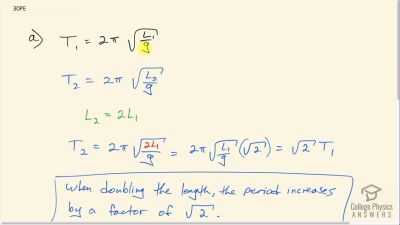 30PE
a) T₁ = 2π √(L₁/g)
T₂ = 2π √(L₂/g)
L₂ = 2L₁
T₂ = 2π √(2L₁/g) = 2π √(L₁/g) (√2) = √2 T₁
When doubling the length, the period increases
by a factor of √2.
College Physics
ANSWERS